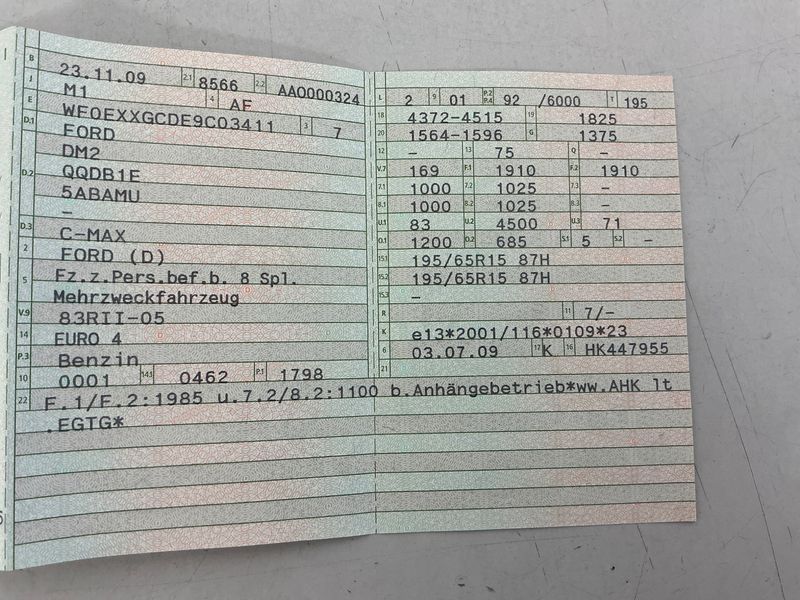 B 23.11.09 2.1 8566 2.2 AAO000324
J M1 4 AF
E WF0EXXGCDE9C03411 3 7
D.1 FORD
DM2
D.2 QQDB1E
5ABAMU
–
D.3 C-MAX
2 FORD (D)
5 Fz.z.Pers.bef.b. 8 Spl.
Mehrzweckfahrzeug
V.9 83RII-05
14 EURO 4
P.3 Benzin
10 0001 14.1 0462 P.1 1798
22 F.1/F.2:1985 u.7.2/8.2:1100 b.Anhängebetrieb*ww.AHK lt
.EGTG*
L 2 9 01 P.2 P.4 92 /6000 T 195
18 4372-4515 19 1825
20 1564-1596 G 1375
12 – 13 75 Q –
V.7 169 F.1 1910 F.2 1910
7.1 1000 7.2 1025 7.3 –
8.1 1000 8.2 1025 8.3 –
U.1 83 U.2 4500 U.3 71
O.1 1200 O.2 685 S.1 5 S.2 –
15.1 195/65R15 87H
15.2 195/65R15 87H
15.3 –
R 11 7/-
K e13*2001/116*0109*23
6 03.07.09 17 K 16 HK447955
21